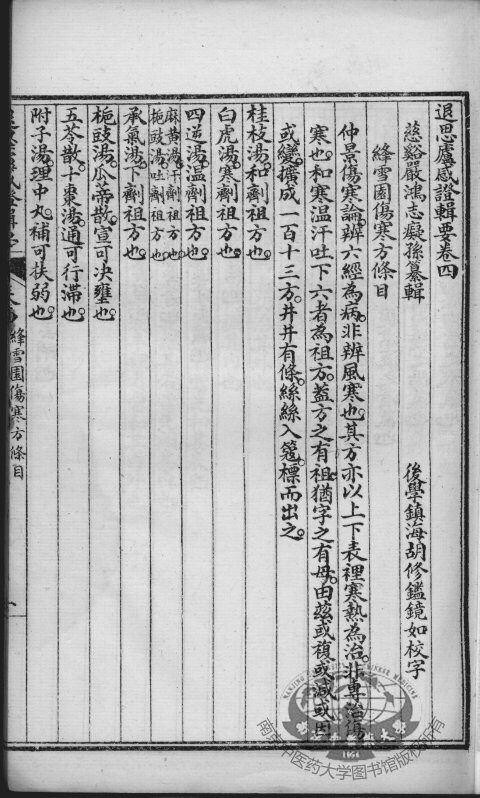 退思廬感證輯要卷四
慈谿嚴鴻志癡孫纂輯
後學鎮海胡修鑑鏡如校字
絳雪園傷寒方條目
仲景傷寒論辨六經為病。非辨風寒也。其方亦以上下表裡寒熱為治。非專治傷
寒也。和寒温汗吐下六者為祖方。蓋方之有祖。猶字之有母。由茲或複或減或因
或變。擴成一百十三方。井井有條。絲絲入筦。標而出之。
桂枝湯。和劑祖方也。
白虎湯。寒劑祖方也。
四逆湯。温劑祖方也。
麻黄湯。汗劑祖方也。
梔豉湯。吐劑祖方也。
承氣湯。下劑祖方也。
梔豉湯。瓜蒂散。宣可决壅也。
五苓散。十棗湯。通可行滯也。
附子湯。理中丸。補可扶弱也。
絳雪園傷寒方條目
南京中医药大学图书馆版权所有